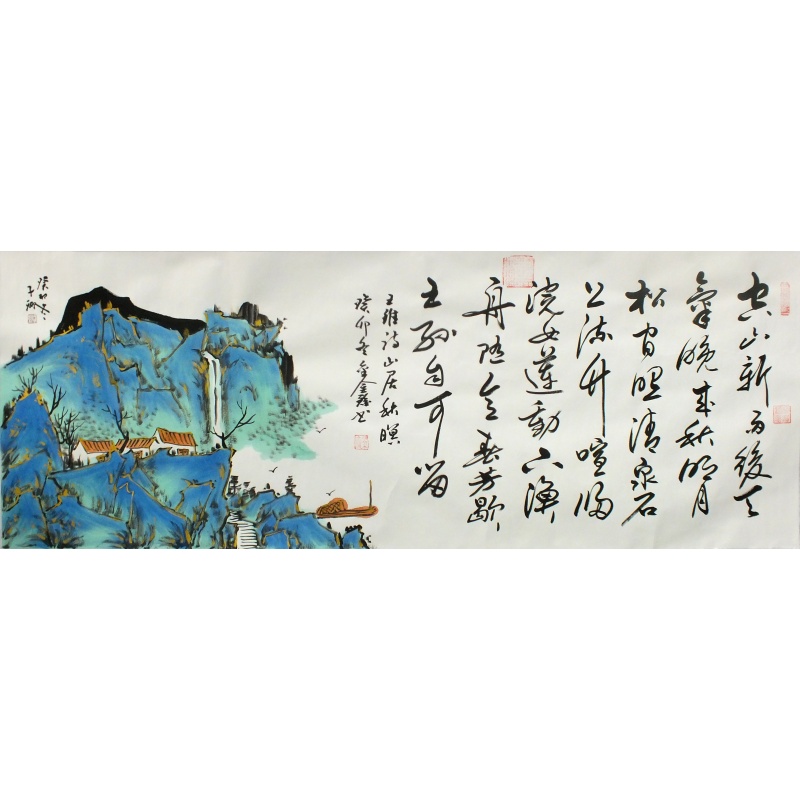 空山新雨後天
氣晚來秋明月
松間照清泉石
上流竹喧歸
浣女蓮動下漁
舟隨意春芳歇
王孫自可留
王維詩山居秋暝
癸卯冬
癸卯冬